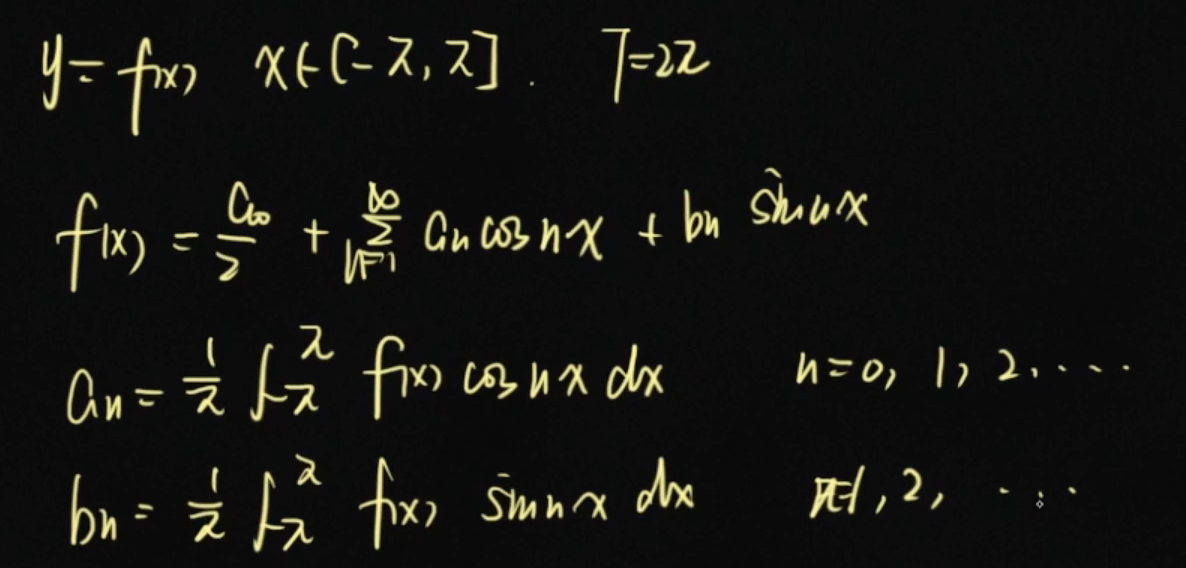 y = f(x) x∈[-π, π]. T=2π
f(x) = a₀/2 + ∑_{n=1}^{∞} aₙ cos nx + bₙ sin nx
aₙ = 1/π ∫_{-π}^{π} f(x) cos nx dx n=0, 1, 2, ....
bₙ = 1/π ∫_{-π}^{π} f(x) sin nx dx n=1, 2, ...